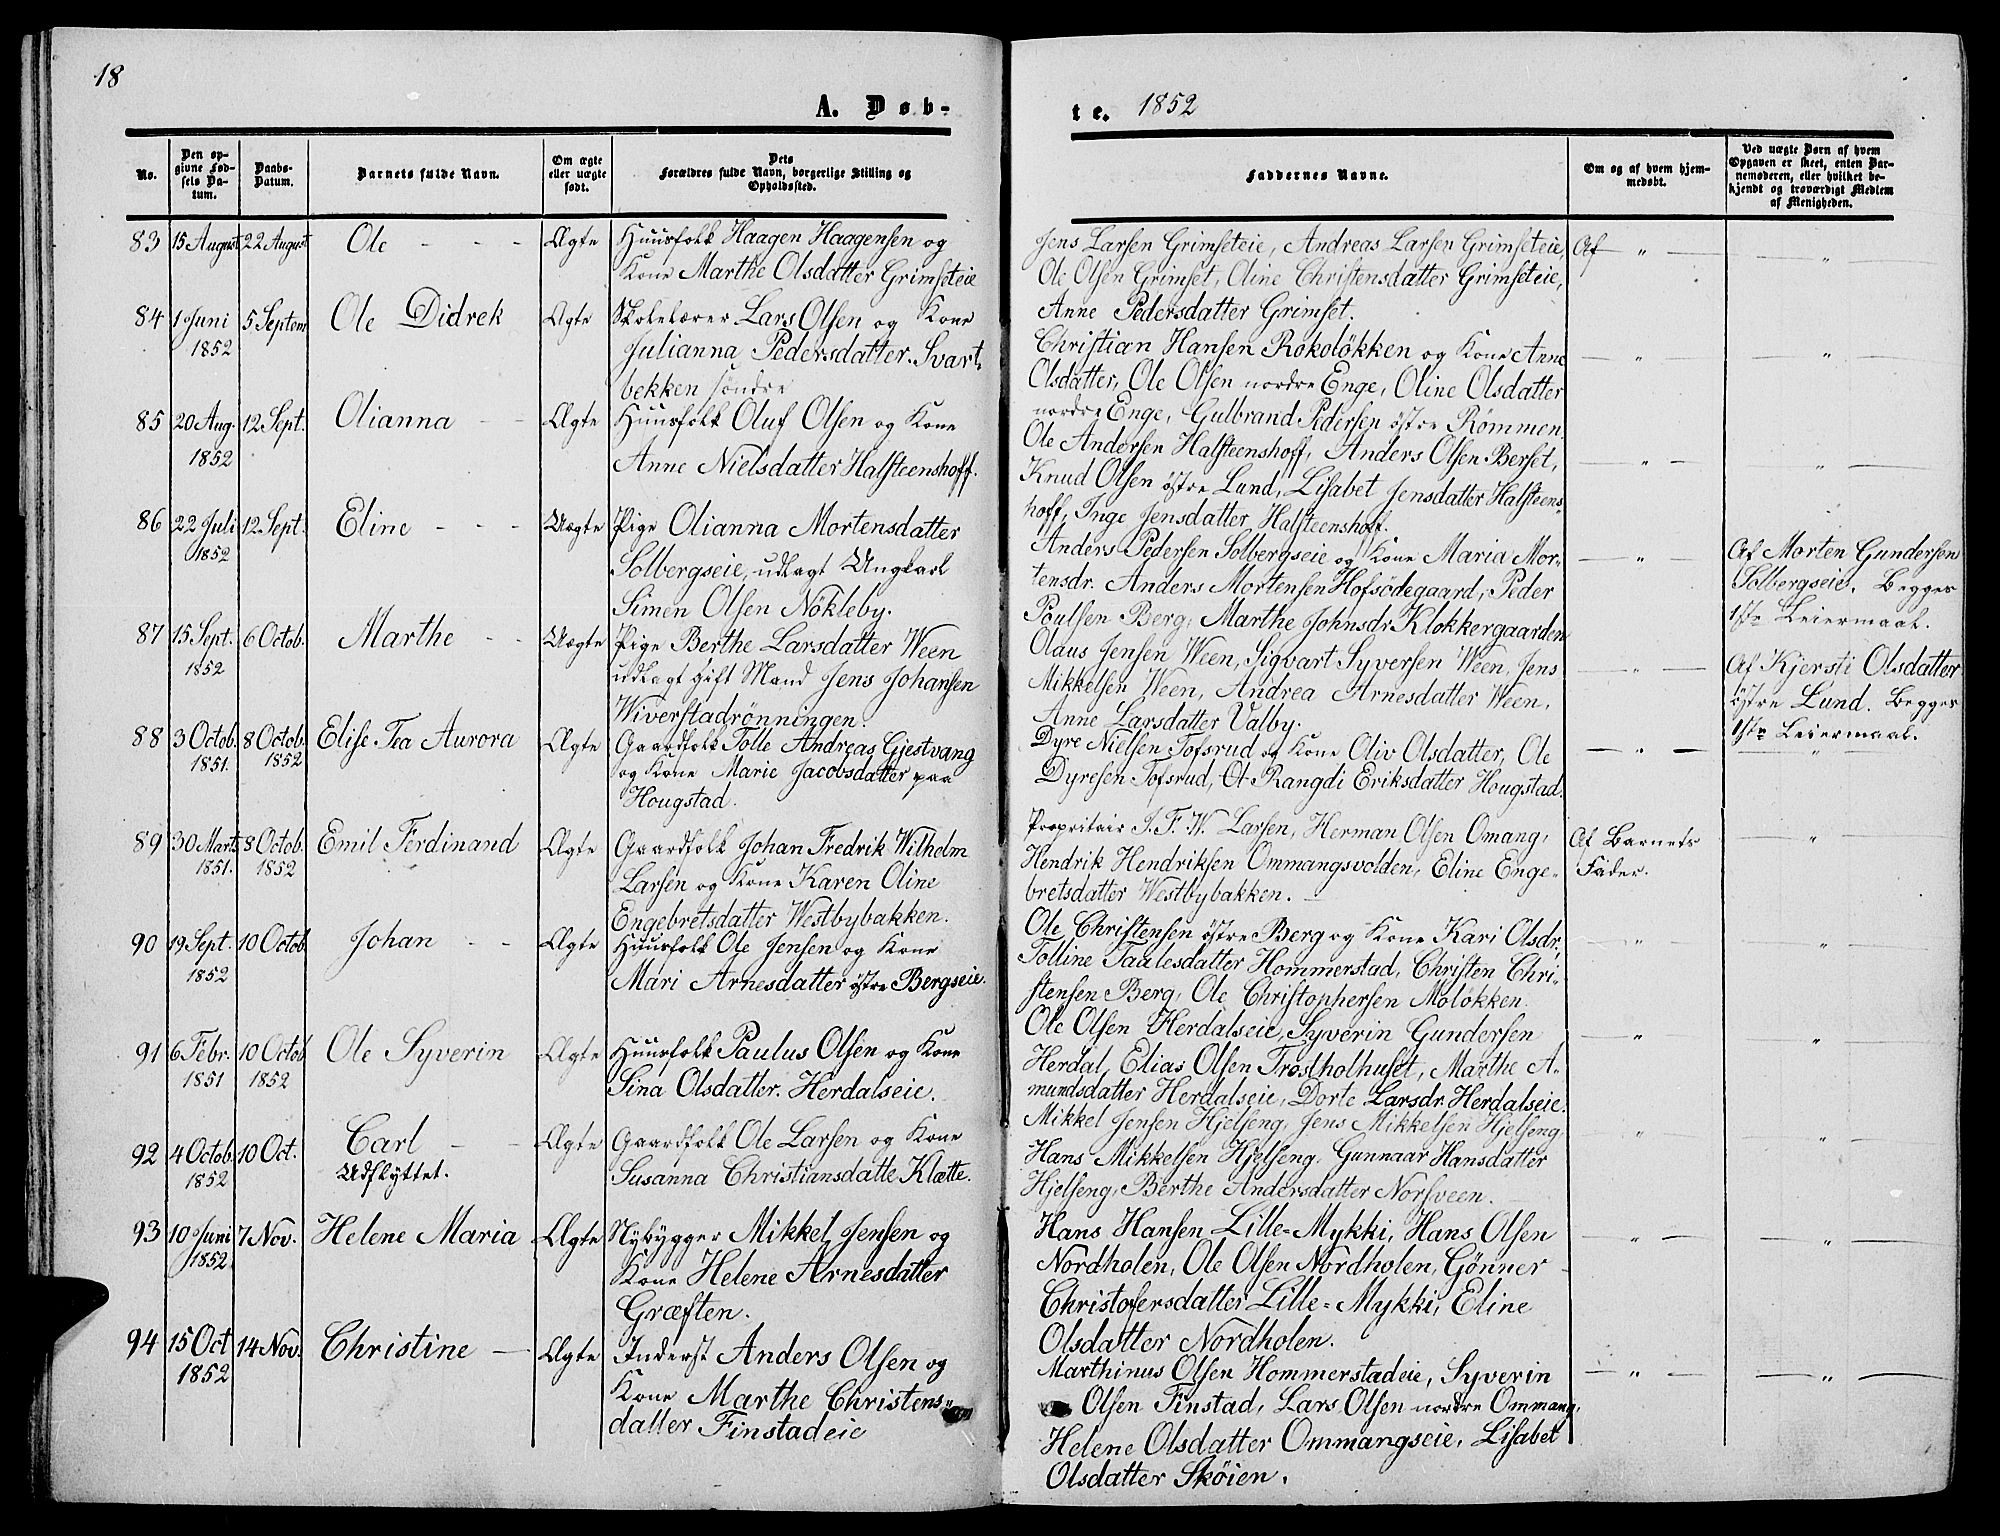 18
A. Døb-
No.
Den op-
givne Fød-
sels Da-
tum.
Daabs-
Datum.
Barnets fulde Navn.
Om ægte
eller uægte
født.
Dets
Forældres fulde Navn, borgerlige Stilling og
Opholdssted.
83 15 August 22 August Ole - - - Ægte Huusfolk Haagen Haagensen og
Kone Marthe Olsdatter Grimseteie
84 1 Juni 5 Septem Ole Didrek Ægte Skolelærer Lars Olsen og Kone
1852 Julianna Pedersdatter. Svart-
bekken søndre
85 20 Aug. 12 Sept. Olianna - - Ægte Huusfolk Oluf Olsen og Kone
1852 Anne Nielsdatter Halsteenshoff.
86 22 Juli 12 Sept. Eline - - - Uægte Pige Olianna Mortensdatter
1852 Solbergseie, udlagt Ungkarl
Simen Olsen Nökleby.
87 15 Sept. 6 Octob. Marthe - - Uægte Pige Berthe Larsdatter Ween
1852 udlagt gift Mand Jens Johansen
Wiverstadrönningen.
88 3 Octob. 8 Octob. Elise Tea Aurora Ægte Gaardfolk Tolle Andreas Gjestvang
1851. 1852 og Kone Marie Jacobsdatter paa
Hougstad.
89 30 Mart. 8 Octob. Emil Ferdinand Ægte Gaardfolk Johan Fredrik Wilhelm
1851. 1852 Larsen og Kone Karen Oline
Engebretsdatter Westbybakken.
90 19 Sept. 10 Octob Johan - - Ægte Huusfolk Ole Jensen og Kone
1852 Mari Arnesdatter østre Bergseie.
91 6 Febr. 10 Octob Ole Syverin Ægte Huusfolk Paulus Olsen og Kone
1851 1852 Sina Olsdatter. Herdalseie.
92 4 Octob. 10 Oct. Carl - - Ægte Gaardfolk Ole Larsen og Kone
1852 Udflyttet. Susanna Christiansdatte Klætte.
93 10 Juni 7 Nov. Helene Maria Ægte Nybygger Mikkel Jensen og
1852. Kone Helene Arnesdatter
Græften.
94 15 Oct 14 Nov. Christine - Ægte Inderst Anders Olsen og
1852 Kone Marthe Christens-
datter Finstadeie
te. 1852
Faddernes Navne.
Om og af hvem hjem-
medøbt.
Ved uægte Børn af hvem
Opgaven er skeet, enten Bar-
nemoderen, eller hvilket be-
kjendt og troværdigt Medlem
af Menigheden.
Jens Larsen Grimseteie, Andreas Larsen Grimseteie, Af - " - - " -
Ole Olsen Grimset, Oline Christensdatter Grimseteie,
Anne Pedersdatter Grimset.
Christian Hansen Rokoløkken og Kone Anne - " - "
Olsdatter, Ole Olsen nordre Enge, Oline Olsdatter
nordre Enge, Gulbrand Pedersen östre Rømmen.
Ole Andersen Halsteenshoff, Anders Olsen Berset, - " - - " -
Knud Olsen östre Lund, Lisabet Jensdatter Halsteens-
hoff, Inge Jensdatter Halsteenshoff.
Anders Pedersen Solbergseie og Kone Maria Mor- - " - Af Morten Gundersen
tensdr. Anders Mortensen Hofsödegaard, Peder Solbergseie. Begges
Poulsen Berg, Marthe Johnsdr. Klokkergaarden 1ste Leiermaal.
Olaus Jensen Ween, Sigvart Syversen Ween, Jens - " - Af Kjersti Olsdatter
Mikkelsen Ween, Andrea Arnesdatter Ween, östre Lund. Begges
Anne Larsdatter Valby. 1ste Leiermaal.
Dyre Nielsen Tofsrud og Kone Oliv Olsdatter, Ole - " - "
Dyresen Tofsrud, Ot Rangdi Eriksdatter Hougstad.
Propritair J. F. W. Larsen, Herman Olsen Omang, Af Barnets - " -
Hendrik Hendriksen Ommangsvolden, Eline Enge- Fader.
bretsdatter Westbybakken. -
Ole Christensen østre Berg og Kone Kari Olsdr. - " - - " -
Tolline Taalesdatter Hommerstad, Christen Chri-
stensen Berg, Ole Christophersen Moløkken.
Ole Olsen Herdalseie, Syverin Gundersen - " - - " -
Herdal, Elias Olsen Trostholhuset, Marthe A-
mundsdatter Herdalseie, Dorte Larsdr. Herdalseie.
Mikkel Jensen Hjelseng, Jens Mikkelsen Hjelseng, - " - - " -
Hans Mikkelsen Hjelseng, Gunnaar Hansdatter
Hjelseng, Berthe Andersdatter Norsveen. -
Hans Hansen Lille-Mykki, Hans Olsen - " - - " -
Nordholen, Ole Olsen Nordholen, Gönner
Christofersdatter Lille-Mykki, Eline
Olsdatter Nordholen.
Marthinus Olsen Hommerstadeie, Syverin - " - - " -
Olsen Finstad, Lars Olsen nordre Ommang,
Helene Olsdatter Ommangseie, Lisabet
Olsdatter Sköien.